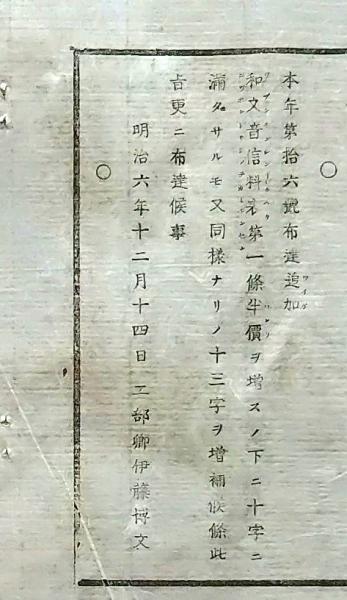 本年第拾六號布達追加
和文音信料表第一條半價ヲ増スノ下ニ十字ニ
滿タサルモ又同様ナリノ十三字ヲ増補候條此
旨更ニ布達候事
明治六年十二月十四日 工部卿伊藤博文